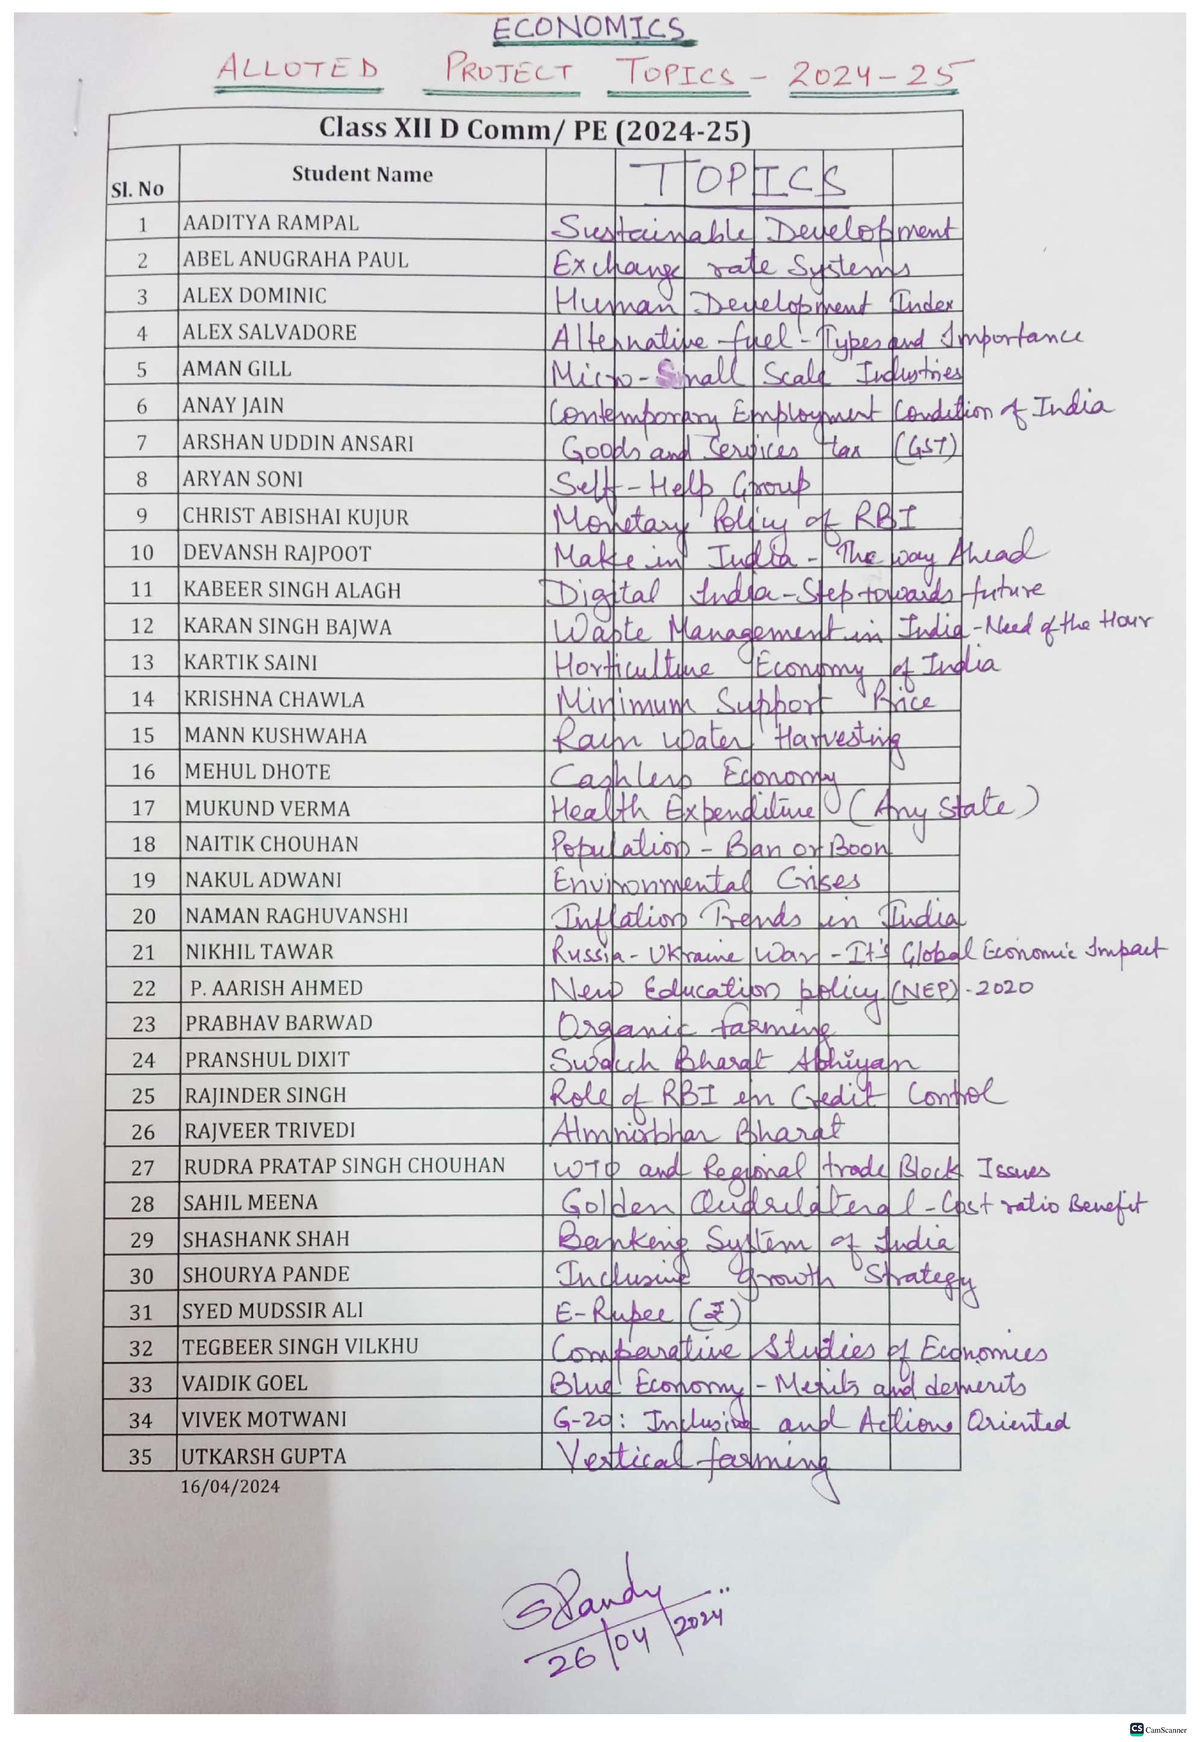 ECONOMICS
ALLOTED PROJECT TOPICS - 2024-25
Class XII D Comm/ PE (2024-25)
Sl. No Student Name TOPICS
1 AADITYA RAMPAL Sustainable Development
2 ABEL ANUGRAHA PAUL Exchange rate Systems
3 ALEX DOMINIC Human Development Index
4 ALEX SALVADORE Alternative fuel - Types and Importance
5 AMAN GILL Micro-Small Scale Industries
6 ANAY JAIN Contemporary Employment Condition of India
7 ARSHAN UDDIN ANSARI Goods and Services tax (GST)
8 ARYAN SONI Self-Help Group
9 CHRIST ABISHAI KUJUR Monetary Policy of RBI
10 DEVANSH RAJPOOT Make in India - The way Ahead
11 KABEER SINGH ALAGH Digital India-Step towards future
12 KARAN SINGH BAJWA Waste Management in India-Need of the Hour
13 KARTIK SAINI Horticulture Economy of India
14 KRISHNA CHAWLA Minimum Support Price
15 MANN KUSHWAHA Rain water Harvesting
16 MEHUL DHOTE Cashless Economy
17 MUKUND VERMA Health Expenditure (Any State)
18 NAITIK CHOUHAN Population - Ban or Boon
19 NAKUL ADWANI Environmental Crises
20 NAMAN RAGHUVANSHI Inflation Trends in India
21 NIKHIL TAWAR Russia - Ukraine War - It's Global Economic Impact
22 P. AARISH AHMED New Education policy (NEP) - 2020
23 PRABHAV BARWAD Organic farming
24 PRANSHUL DIXIT Swacch Bharat Abhiyan
25 RAJINDER SINGH Role of RBI in Credit Control
26 RAJVEER TRIVEDI Atmnirbhar Bharat
27 RUDRA PRATAP SINGH CHOUHAN WTO and Regional trade Block Issues
28 SAHIL MEENA Golden Quadrilateral - Cost ratio Benefit
29 SHASHANK SHAH Banking System of India
30 SHOURYA PANDE Inclusive growth Strategy
31 SYED MUDSSIR ALI E-Rupee (₹)
32 TEGBEER SINGH VILKHU Comparative Studies of Economies
33 VAIDIK GOEL Blue Economy - Merits and demerits
34 VIVEK MOTWANI G-20: Inclusive and Actions Oriented
35 UTKARSH GUPTA Vertical farming
16/04/2024
SPandy
26/04/2024
CS CamScanner